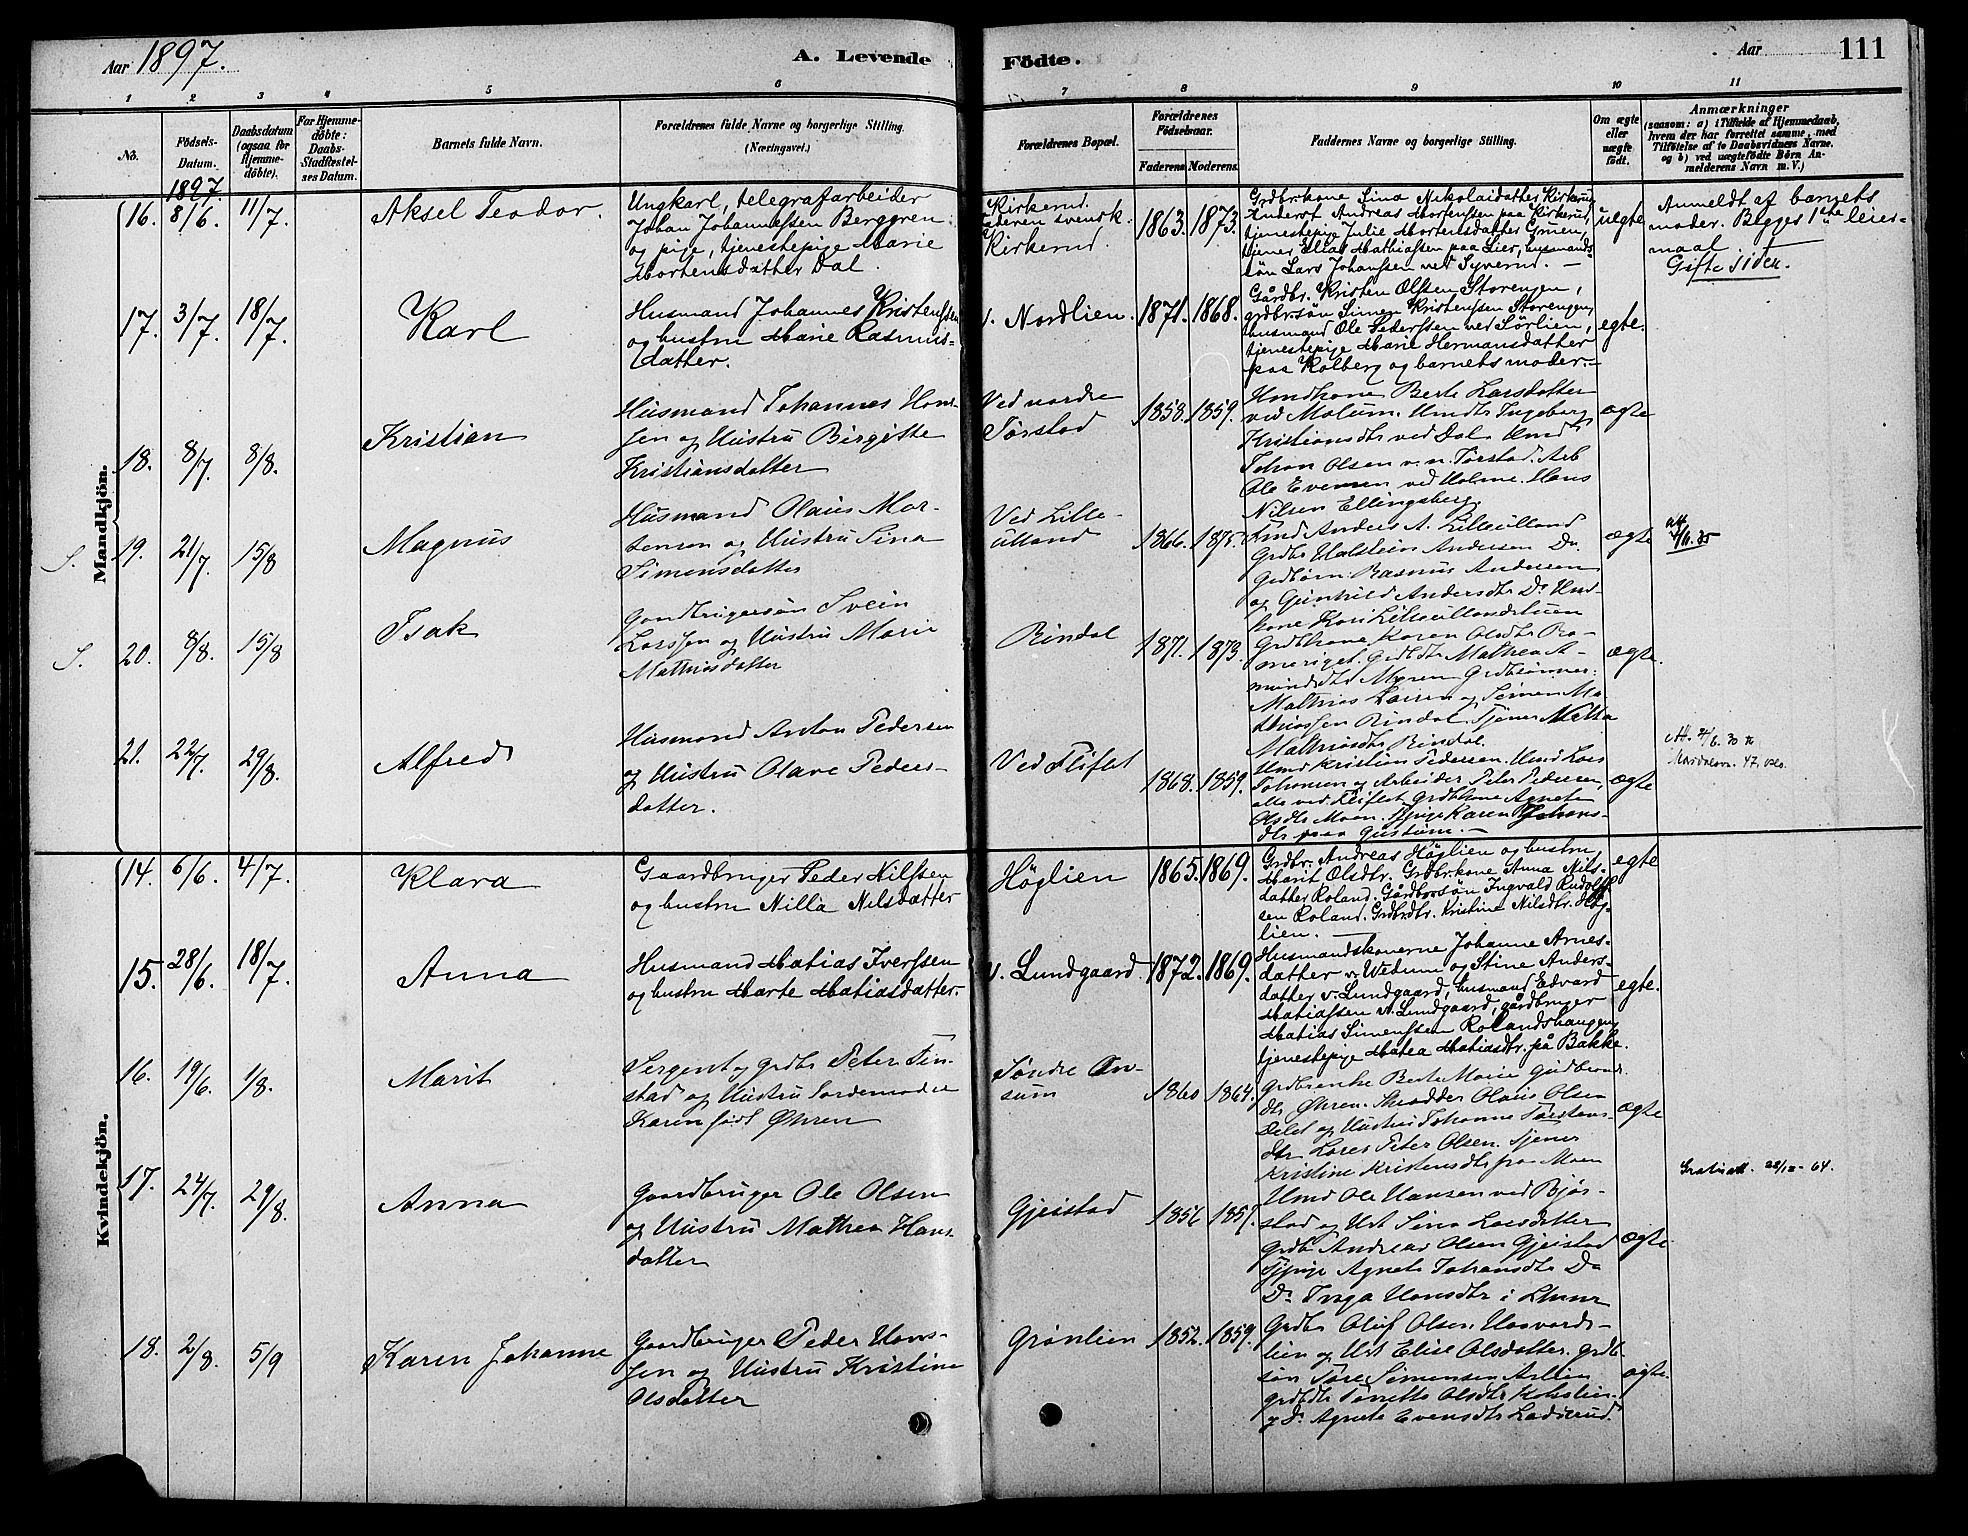 Aar 1897.
A. Levende Födte.
Aar
111
1 2 3 4 5 6 7 8 9 10 11
No.
Födsels-Datum.
Daabsdatum (ogsaa for Hjemmedöbte).
For Hjemmedöbte: Daabs-Stadfestelses Datum.
Barnets fulde Navn.
Forældrenes fulde Navne og borgerlige Stilling.
(Næringsvei.)
Forældrenes Bopæl.
Forældrenes Födselsaar.
Faderens. Moderens.
Faddernes Navne og borgerlige Stilling.
Om ægte eller uægte født.
Anmærkninger
(saasom: a) i Tilfælde af Hjemmedaab, hvem der har forrettet samme, med Tilföielse af to Daabsvidners Navne. og b) ved uægtefödte Börn Anmelderens Navn m. V.)
Mandkjön.
1897.
16. 8/6 11/7. Aksel Teodor.
Ungkarl, telegrafarbeider
Johan Johannessen Berggren
og pige, tjenestepige Marie
Mortensdatter Dal.
Kirkerud.
Faderen svensk.
Kirkerud
1863. 1873.
Grdbr.kone Lina Nikolaidatter Kirkerud
Andreas Mortenssen paa Kirkerud,
tjenestepige Julie Mortensdatter
tjener Elias Mathiassen paa Lier, husmands-
søn Lars Johanssen ved Syverud. —
uegte
Anmeldt af barnets
moder. Begges 1ste leier-
maal.
Gifte siden.
17. 3/7. 18/7. Karl
Husmand Johannes Kristenssen
og hustru Marie Rasmus-
datter.
v. Nordlien. 1871. 1868.
Gårdbr. Kristen Olssen Storengen,
grdbr.søn Simen Kristenssen Storengen,
husmand Ole Pederssen ved Sørlien,
tjenestepige Marie Hermansdatter
paa Kolberg og barnets moder. —
egte.
18. 8/7. 8/8. Kristian
Husmand Johannes Han-
sen og Hustru Birgitte
Kristiansdatter
Ved nordre
Torstad
1858. 1859.
Hmdkone Berte Larsdatter
ved Molum. Hmdtr Ingeborg
Kristiansdtr ved Dal. Hmd
Johan Olsen v. n. Torstad. Arb
Ole Evensen ved Holme. Hans
Nilsen Ellingsberg.
ægte
S. 19. 21/7. 15/8 Magnus
Husmand Olaus Mor-
tensen og Hustru Sina
Simensdatter
Ved Lille-
ulland
1866.
Anders A. Lilleulland
Grdbr Halstein Andersen Do.
Grdbørn: Rasmus Andersen
og Gunhild Andersdtr Do Hmd-
kone Kari Lilleullandstuen
ægte
S. 20. 8/8. 15/8 Isak
Gaardbrugersøn Svein
Larssen og Hustru Marie
Mathiasdatter
Rindal
1871. 1873.
Grdbkone Karen Olsdtr Ro-
meriget. Grdbdtr Mathea A-
mundsdtr Myren Grdbsønner:
Mathias Lauren og Simen Ma-
thiassen Rindal. Tjener Netta
Mathiasdtr Rindal.
ægte.
21. 22/7. 29/8. Alfred
Husmand Anton Pedersen
og Hustru Olave Peders-
datter.
Ved Fliflet
1868. 1859.
Hmd Kristian Pedersen. Hmd Lars
Johansen og Arbeider Peter Pedersen,
alle ved Fliflet. Grdbkone Agnete
Olsdtr Moen. Tjpige Karen Johans-
dtr paa Gustum. —
ægte
Kvindekjön.
14. 6/6. 4/7. Klara
Gaardbruger Peder Nilssen
og hustru Nilla Nilsdatter
Höglien 1865. 1869.
Grdbr. Andreas Höglien og hustru
Marit Olsdtr. Grdbr.kone Anna Nils-
datter Roland. Gårdbr.søn Ingvald Rudolf-
sen Roland. Grdbrdtr. Kristine Nilsdtr. Hög-
lien. —
egte
15. 28/6. 18/7. Anna
Husmand Matias Iverssen
og hustru Marte Matiasdatter.
v. Lundgaard. 1872. 1869.
Husmandskonerne Johanne Arnes-
datter v. Wetum og Stine Anders-
datter v. Lundgaard, husmand Edvard
Matiassen v. Lundgaard, gårdbruger
Matias Simenssen Rolandshaugen,
tjenestepige Matea Matiasdtr. på Bakke.
egte.
16. 19/6. 1/8. Marit
Sergent og grdbr Peter Fin-
stad og Hustru Jordemoder
Karen født Öhren
Søndre On-
sum
1860 1864.
Grdbrenke Berte Marie Gudbrands-
dtr Öhren. Skrædder Olaus Olsen
og Hustru Johanne Torstens-
dtr. Peter Olsen. Tjener
Kristine Kristensdtr paa Moen
ægte
17. 24/7. 29/8. Anna
Gaardbruger Ole Olsen
og Hustru Mathea Hans-
datter
Gjeistad
1856 1857.
Hmd Ole Hansen ved Bjør-
stad og Hst Sina Larsdatter
Grdbr Andreas Olsen Gjeistad
Tjpige Agnete Johansdtr Do
Do Inga Hansdtr i Lunne
ægte.
22/12 - 64.
18. 2/8. 5/9 Karen Johanne
Gaardbruger Peder Hans-
sen og Hustru Kristine
Olsdatter
Grønlien 1852. 1859.
Grdbr Oluf Olsen Havards-
lien og Hst Elise Olsdatter. Grdb-
søn Tore Simensen
Grdbdtr Tonette Olsdtr
og Do Agnete Evensdtr Ladserud.
ægte.